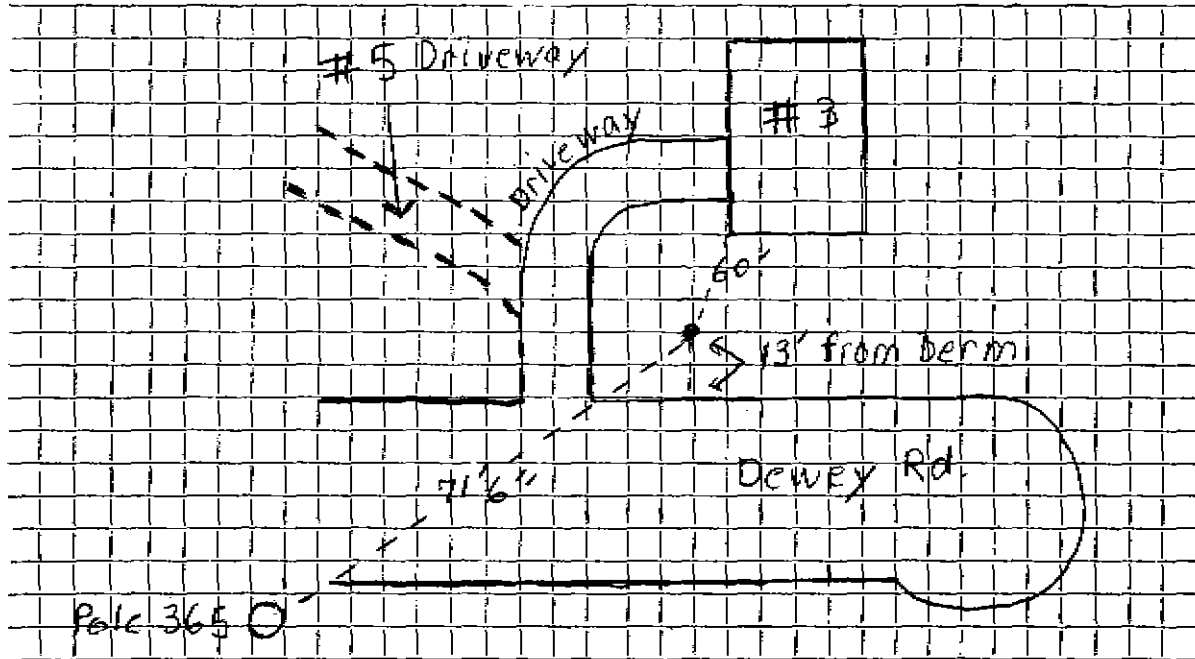 # 5 Driveway
# 3
Driveway
60'
13' from berm
Dewey Rd.
71'6"
Pole 365